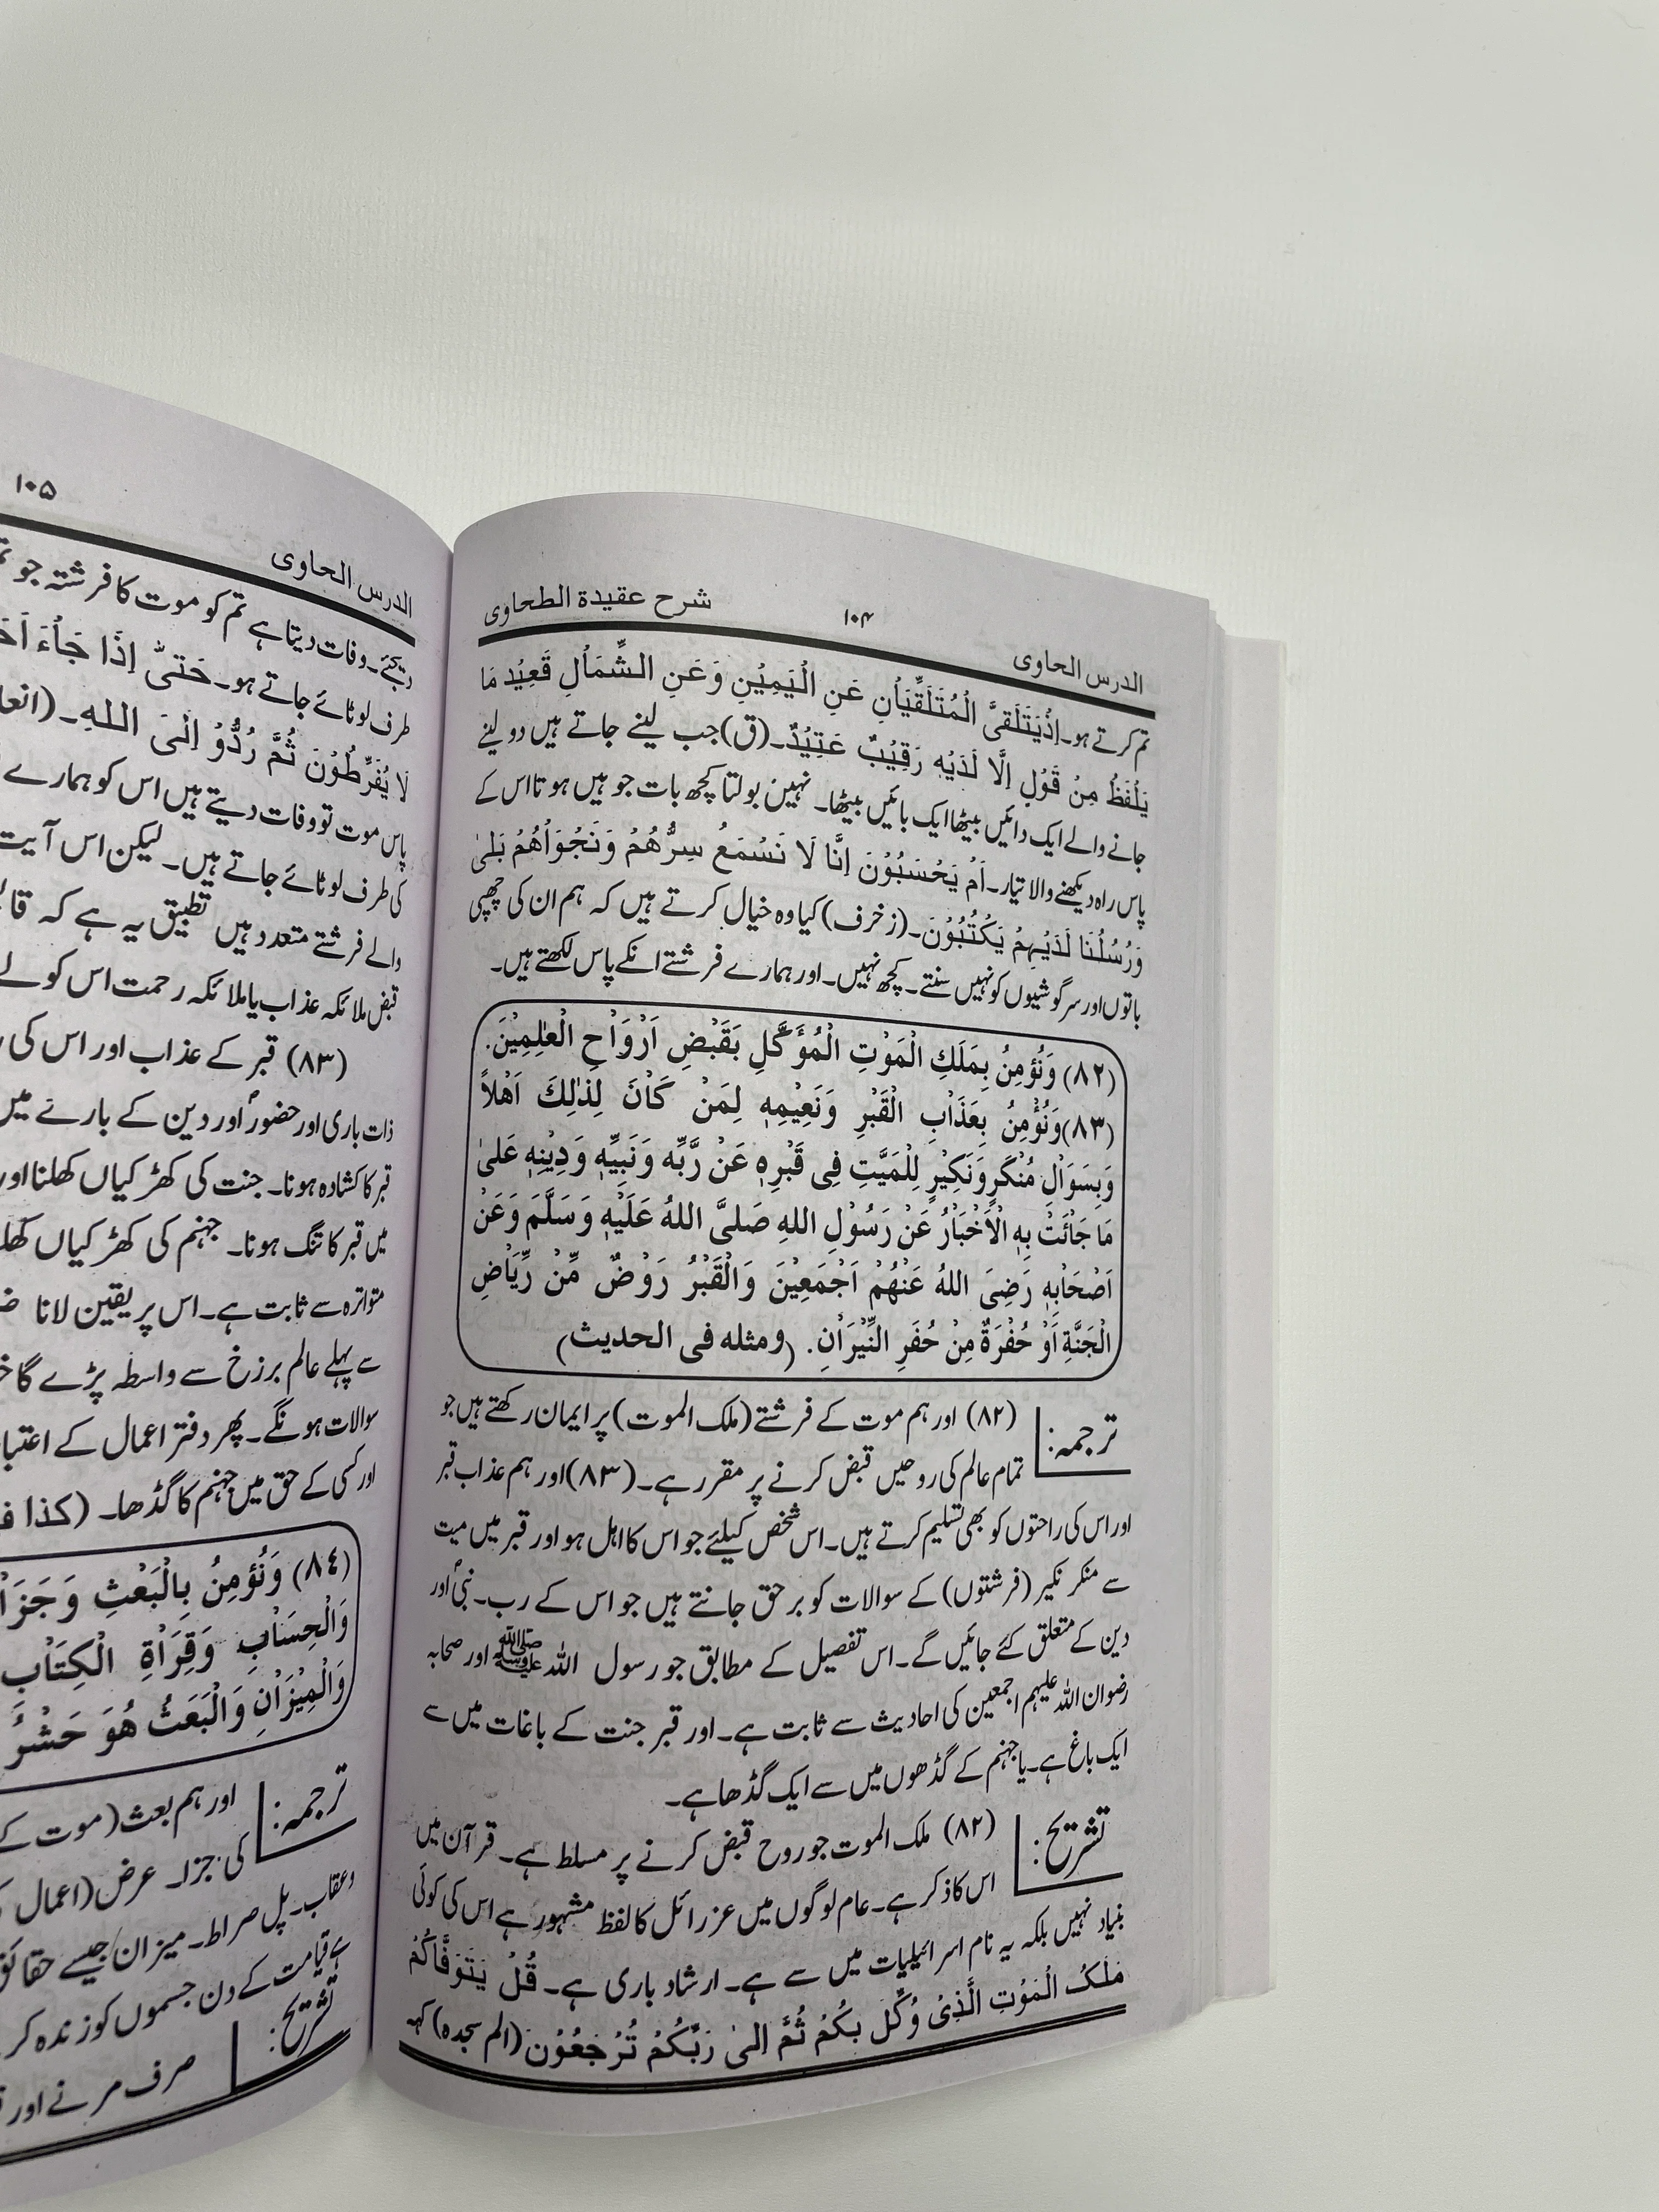 الدرس الحاوی ۱۰۴ شرح عقیدۃ الطحاوی
تم کرتے ہو۔ اِذْیَتَلَقیَّ الْمُتَلَقِّیَاٰنِ عَنِ الْیَمِیْنِ وَعَنِ الشِّمَاٰلِ قَعِیْد مَا
یَلْفَظُ مِنْ قَوْلٍ اِلَّا لَدَیْهِ رَقِیْبٌ عَتِیْدٌ۔ (ق) جب لینے جاتے ہیں دو لینے
جانے والے ایک دائیں بیٹھا ایک بائیں بیٹھا۔ نہیں بولتا کچھ بات جو ہیں ہوتا اس کے
پاس راہ دیکھنے والا تیار۔ اَمْ یَحْسَبُوْنَ اِنَّا لَا نَسْمَعُ سِرُّهُمْ وَنَجْوَاٰهُمْ بَلیٰ
وَرُسُلُنَا لَدَیْهِمْ یَکْتُبُوْنَ۔ (زخرف) کیا وہ خیال کرتے ہیں کہ ہم ان کی چھپی
باتوں اور سرگوشیوں کو نہیں سنتے۔ کچھ نہیں۔ اور ہمارے فرشتے انکے پاس لکھتے ہیں۔
(٨٢) وَنُؤمِنُ بِمَلَكِ الْمَوْتِ الْمُؤَكَّلِ بَقَبْضِ اَرْوَاْحِ الْعٰلِمِیْنَ.
(٨٣) وَنُؤْمِنُ بِعَذَاْبِ الْقَبْرِ وَنَعِیْمِهٖ لِمَنْ كَاْنَ لِذٰلِكَ اَهْلاً
وَبِسَوَاْلِ مُنْكَرٍ وَنَكِیْرٍ لِلْمَیَّتِ فِی قَبْرِهٖ عَنْ رَّبِّهٖ وَنَبِیِّهٖ وَدِیْنِهٖ عَلیٰ
مَا جَائَتْ بِهِ الْاَخْبَاْرُ عَنْ رَسُوْلِ اللهِ صَلیَّ اللهُ عَلَیْهِ وَسَلَّمَ وَعَنْ
اَصْحَاْبِهٖ رَضِیَ اللهُ عَنْهُمْ اَجْمَعِیْنَ وَالْقَبْرُ رَوْضٌ مِّنْ رِّیَاْضِ
الْجَنَّةِ اَوْ حُفْرَةٌ مِنْ حُفَرِ النِّیْرَاْنِ. (ومثله فی الحدیث)
ترجمہ: (۸۲) اور ہم موت کے فرشتے (ملک الموت) پر ایمان رکھتے ہیں جو
تمام عالم کی روحیں قبض کرنے پر مقرر ہے۔ (۸۳) اور ہم عذاب قبر
اور اس کی راحتوں کو بھی تسلیم کرتے ہیں۔ اس شخص کیلئے جو اس کا اہل ہو اور قبر میں میت
سے منکر نکیر (فرشتوں) کے سوالات کو برحق جانتے ہیں جو اس کے رب۔ نبیؐ اور
دین کے متعلق کئے جائیں گے۔ اس تفصیل کے مطابق جو رسول اللہ ﷺ اور صحابہ
رضوان اللہ علیہم اجمعین کی احادیث سے ثابت ہے۔ اور قبر جنت کے باغات میں سے
ایک باغ ہے۔ یا جہنم کے گڈھوں میں سے ایک گڈھا ہے۔
تشریح: (۸۲) ملک الموت جو روح قبض کرنے پر مسلط ہے۔ قرآن میں
اس کا ذکر ہے۔ عام لوگوں میں عزرائل کا لفظ مشہور ہے اس کی کوئی
بنیاد نہیں بلکہ یہ نام اسرائیلیات میں سے ہے۔ ارشاد باری ہے۔ قُلْ یَتَوَفَّاکُمْ
مَلَکُ الْمَوْتِ الَّذِیْ وُکِّل بِکُمْ ثُمَّ اِلیٰ رَبِّکُمْ تُرْجَعُوْن (الم سجدہ) کہہ
الدرس الحاوی ۱۰۵
دیجئے۔ وفات دیتا ہے تم کو موت کا فرشتہ جو
طرف لوٹائے جاتے ہو۔ حَتیّٰ اِذَا جَاْءَ
لَا یُفَرِّطُوْنَ ثُمَّ رُدُّوْ اِلیَ اللهِ۔
پاس موت تو وفات دیتے ہیں اس کو ہمارے
کی طرف لوٹائے جاتے ہیں۔ لیکن اس آیت
والے فرشتے متعدد ہیں تطبیق یہ ہے کہ
قبض ملائکہ عذاب یا ملائکہ رحمت اس کو لے
(۸۳) قبر کے عذاب اور اس کی
ذات باری اور حضورؐ اور دین کے بارے میں
قبر کا کشادہ ہونا۔ جنت کی کھڑکیاں کھلنا اور
میں قبر کا تنگ ہونا۔ جہنم کی کھڑکیاں
متواترہ سے ثابت ہے۔ اس پر یقین لانا
سے پہلے عالم برزخ سے واسطہ پڑے گا
سوالات ہونگے۔ پھر دفتر اعمال کے
اور کسی کے حق میں جہنم کا گڈھا۔ (کذا
(٨٤) وَنُؤمِنُ بِالْبَعْثِ وَجَزَاْ
وَالْحِسَاْبِ وَقِرَاْةِ الْكِتَاْبِ
وَالْمِیْزَاْنِ وَالْبَعَثُ هُوَ حَشْرُ
ترجمہ: اور ہم بعث (موت کے
کی جزا۔ عرض (اعمال
وعقاب۔ پل صراط۔ میزان جیسے
ہے قیامت کے دن جسموں کو زندہ کر
تشریح: صرف مرنے اور